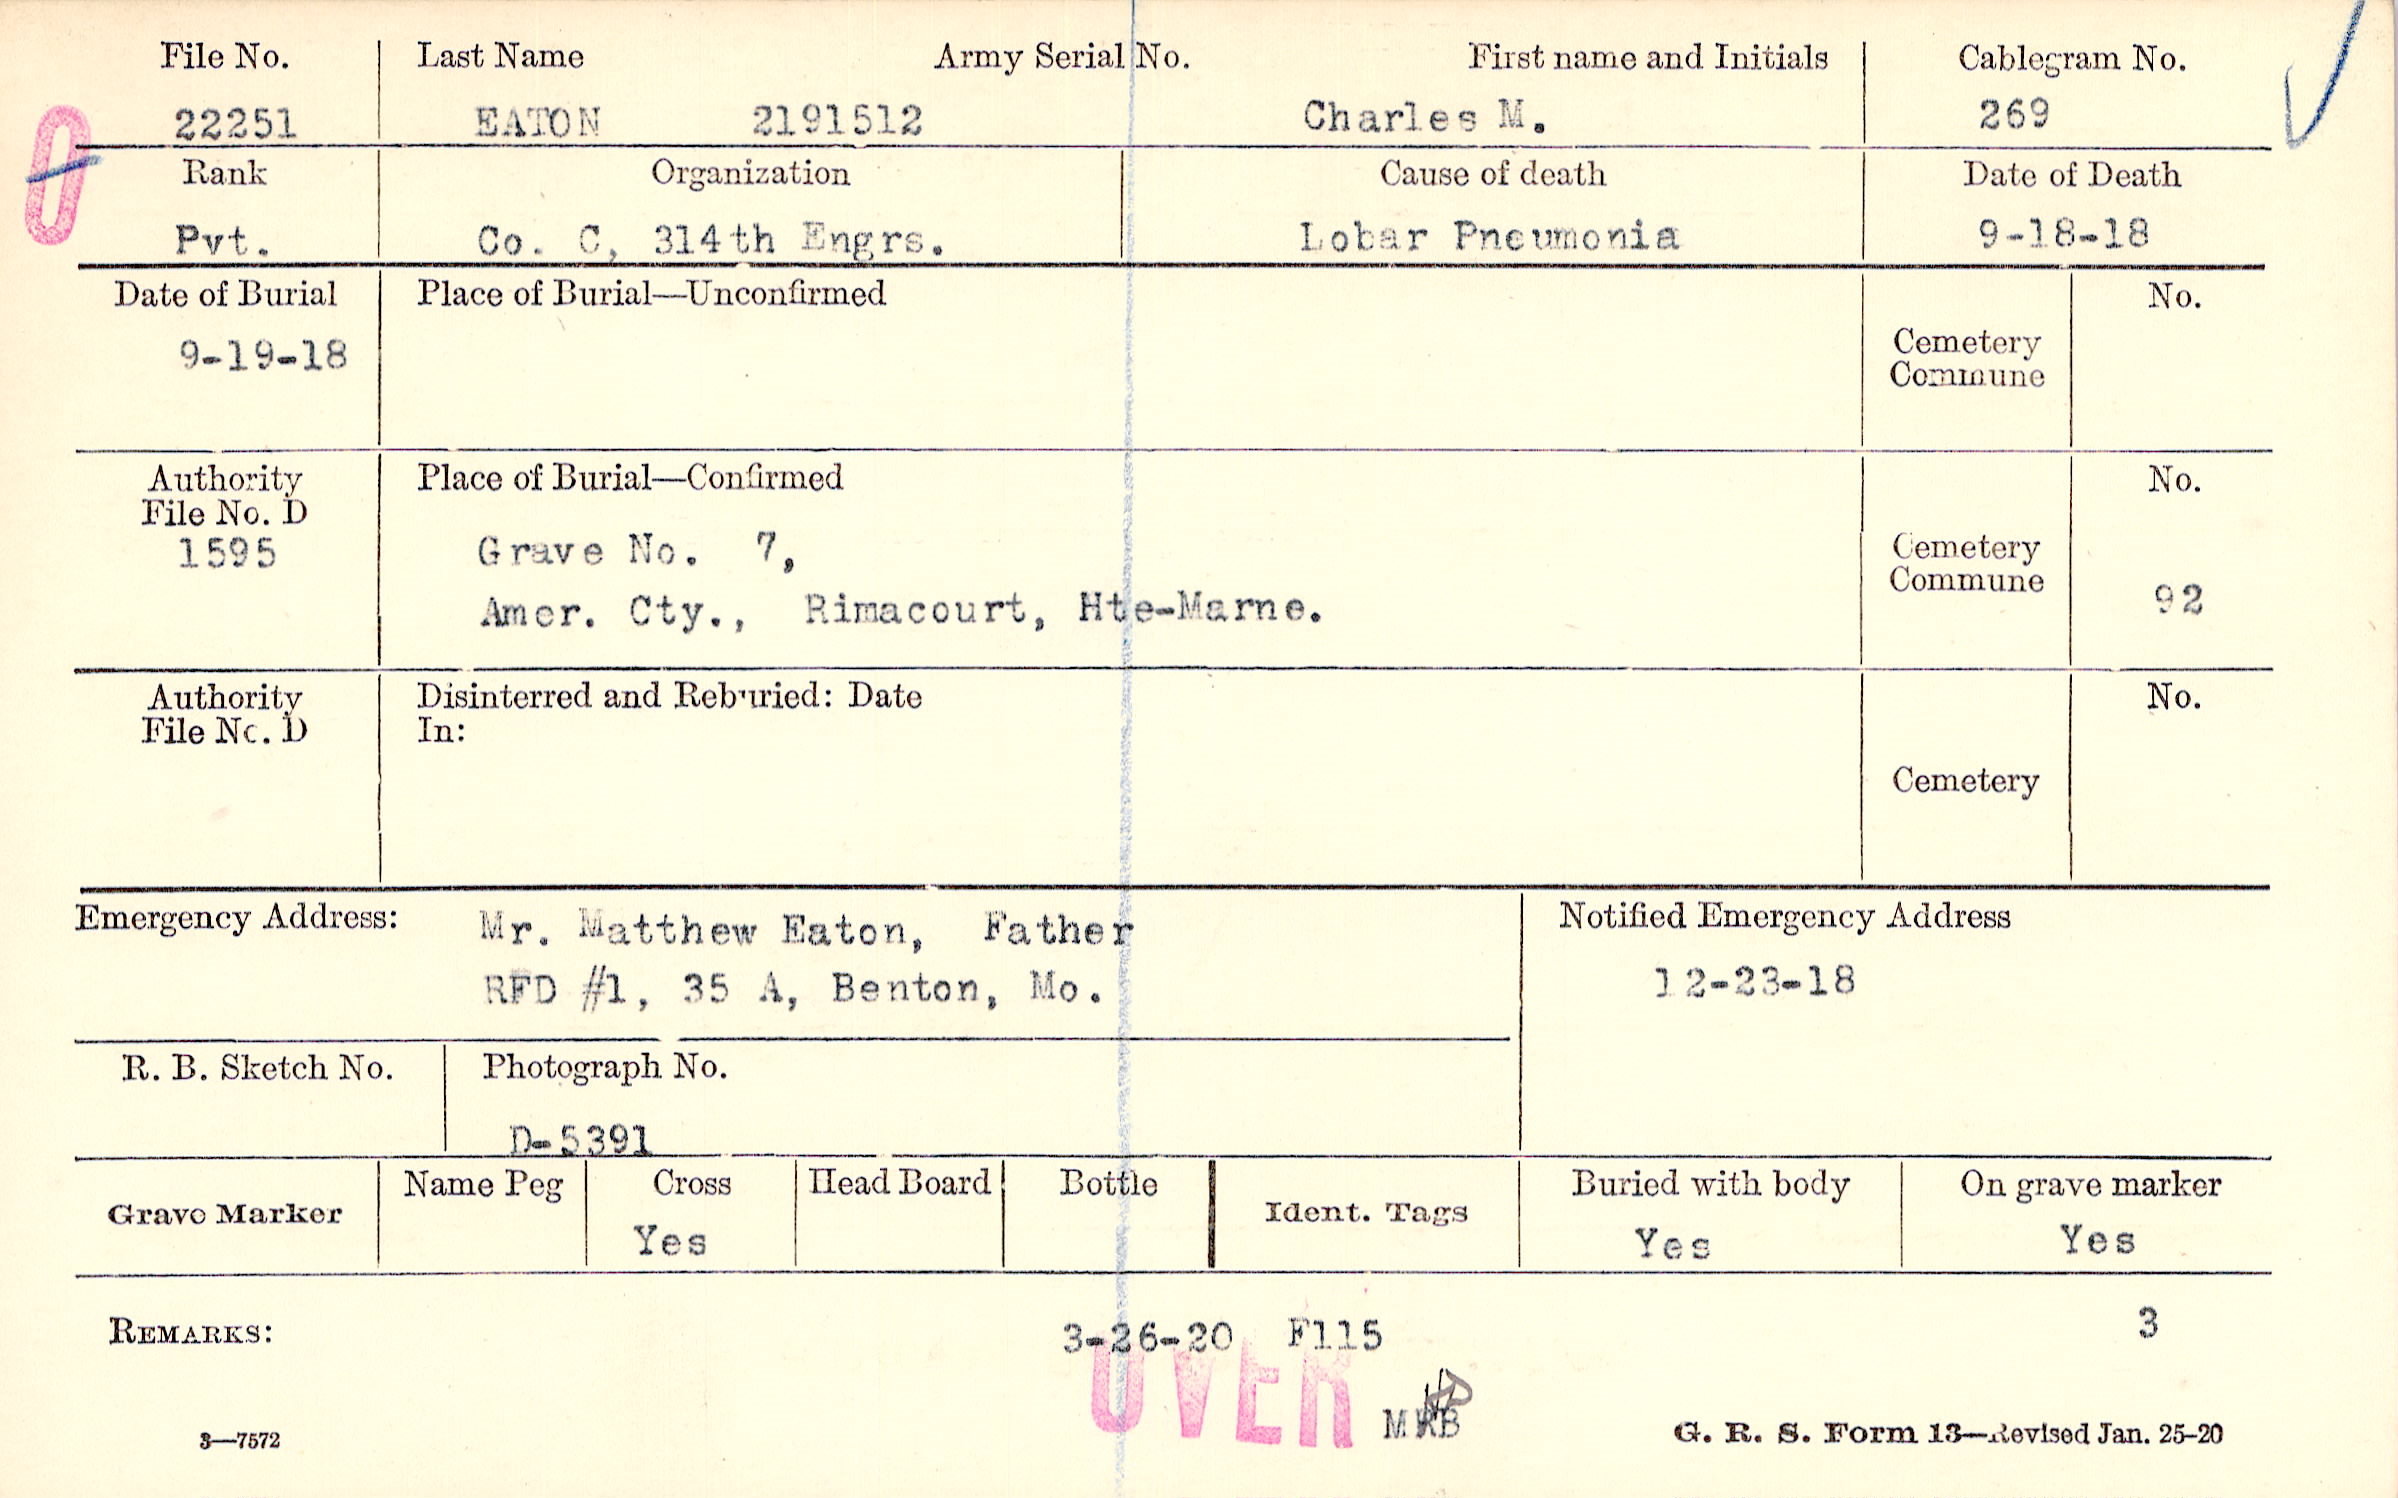 File No. Last Name Army Serial No. First name and Initials Cablegram No.
22251 EATON 2191512 Charles M. 269
O
Rank Organization Cause of death Date of Death
Pvt. Co. C, 314th Engrs. Lobar Pneumonia 9-18-18
Date of Burial Place of Burial—Unconfirmed No.
9-19-18
Cemetery
Commune
Authority Place of Burial—Confirmed No.
File No. D
1595 Grave No. 7, Cemetery
Commune
Amer. Cty., Rimacourt, Hte-Marne. 92
Authority Disinterred and Reburied: Date No.
File No. D In:
Cemetery
Emergency Address: Mr. Matthew Eaton, Father Notified Emergency Address
RFD #1, 35 A, Benton, Mo. 12-23-18
R. B. Sketch No. Photograph No.
D-5391
Grave Marker Name Peg Cross Head Board Bottle Ident. Tags Buried with body On grave marker
Yes Yes Yes
REMARKS: 3-26-20 F115 3
OVER
3—7572 G. R. S. Form 13—Revised Jan. 25-20